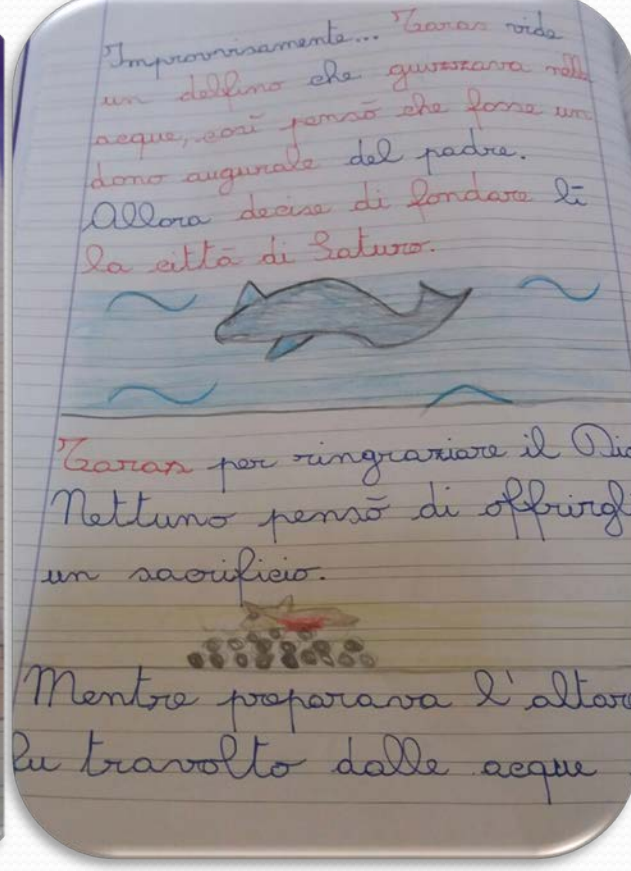 Improvvisamente... Taras vide
un delfino che guizzava nelle
acque, così pensò che fosse un
dono augurale del padre.
Allora decise di fondare lì
la città di Saturo.
Taras per ringraziare il Dio
Nettuno pensò di offrirgl
un sacrificio.
Mentre preparava l'altare
fu travolto dalle acque